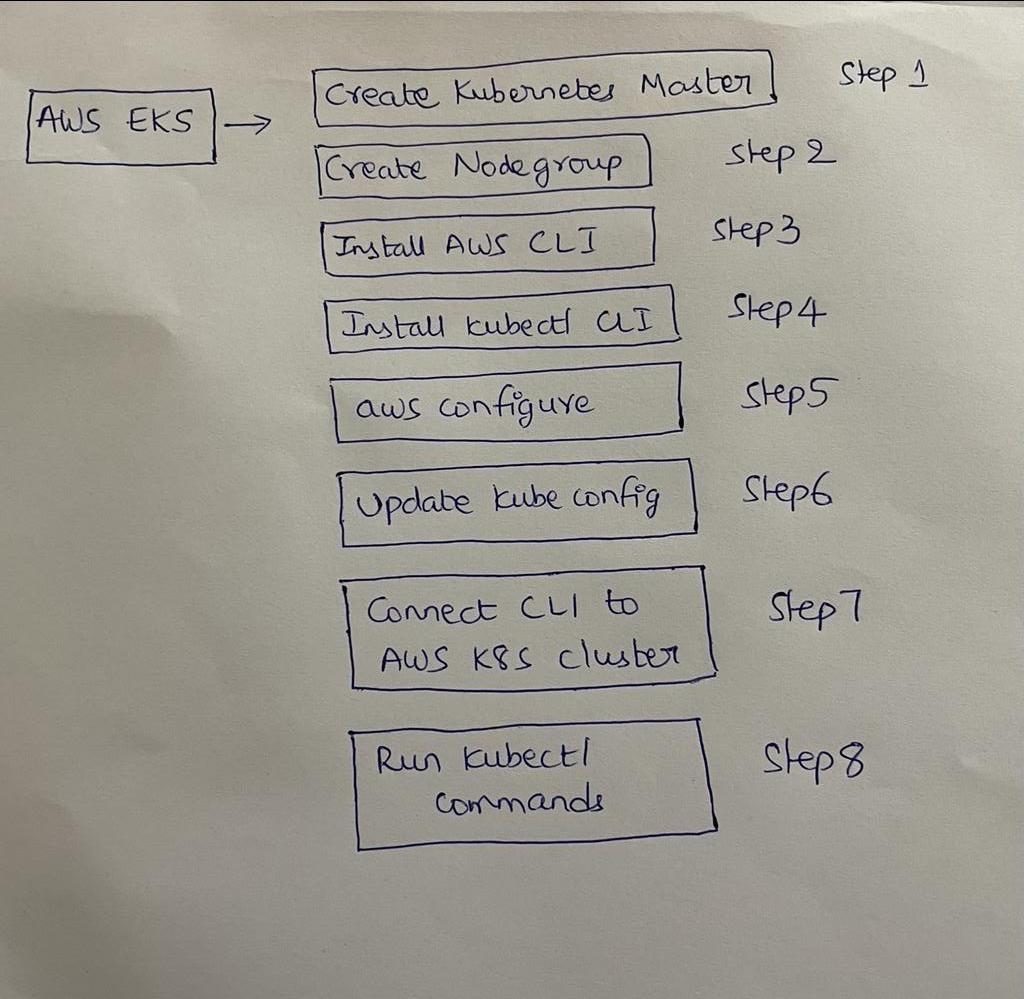 AWS EKS
Create Kubernetes Master
Step 1
Create Nodegroup
Step 2
Install AWS CLI
Step3
Install kubectl CLI
Step4
aws configure
Step5
Update kube config
Step6
Connect CLI to
AWS K8S cluster
Step7
Run kubectl
commands
Step8